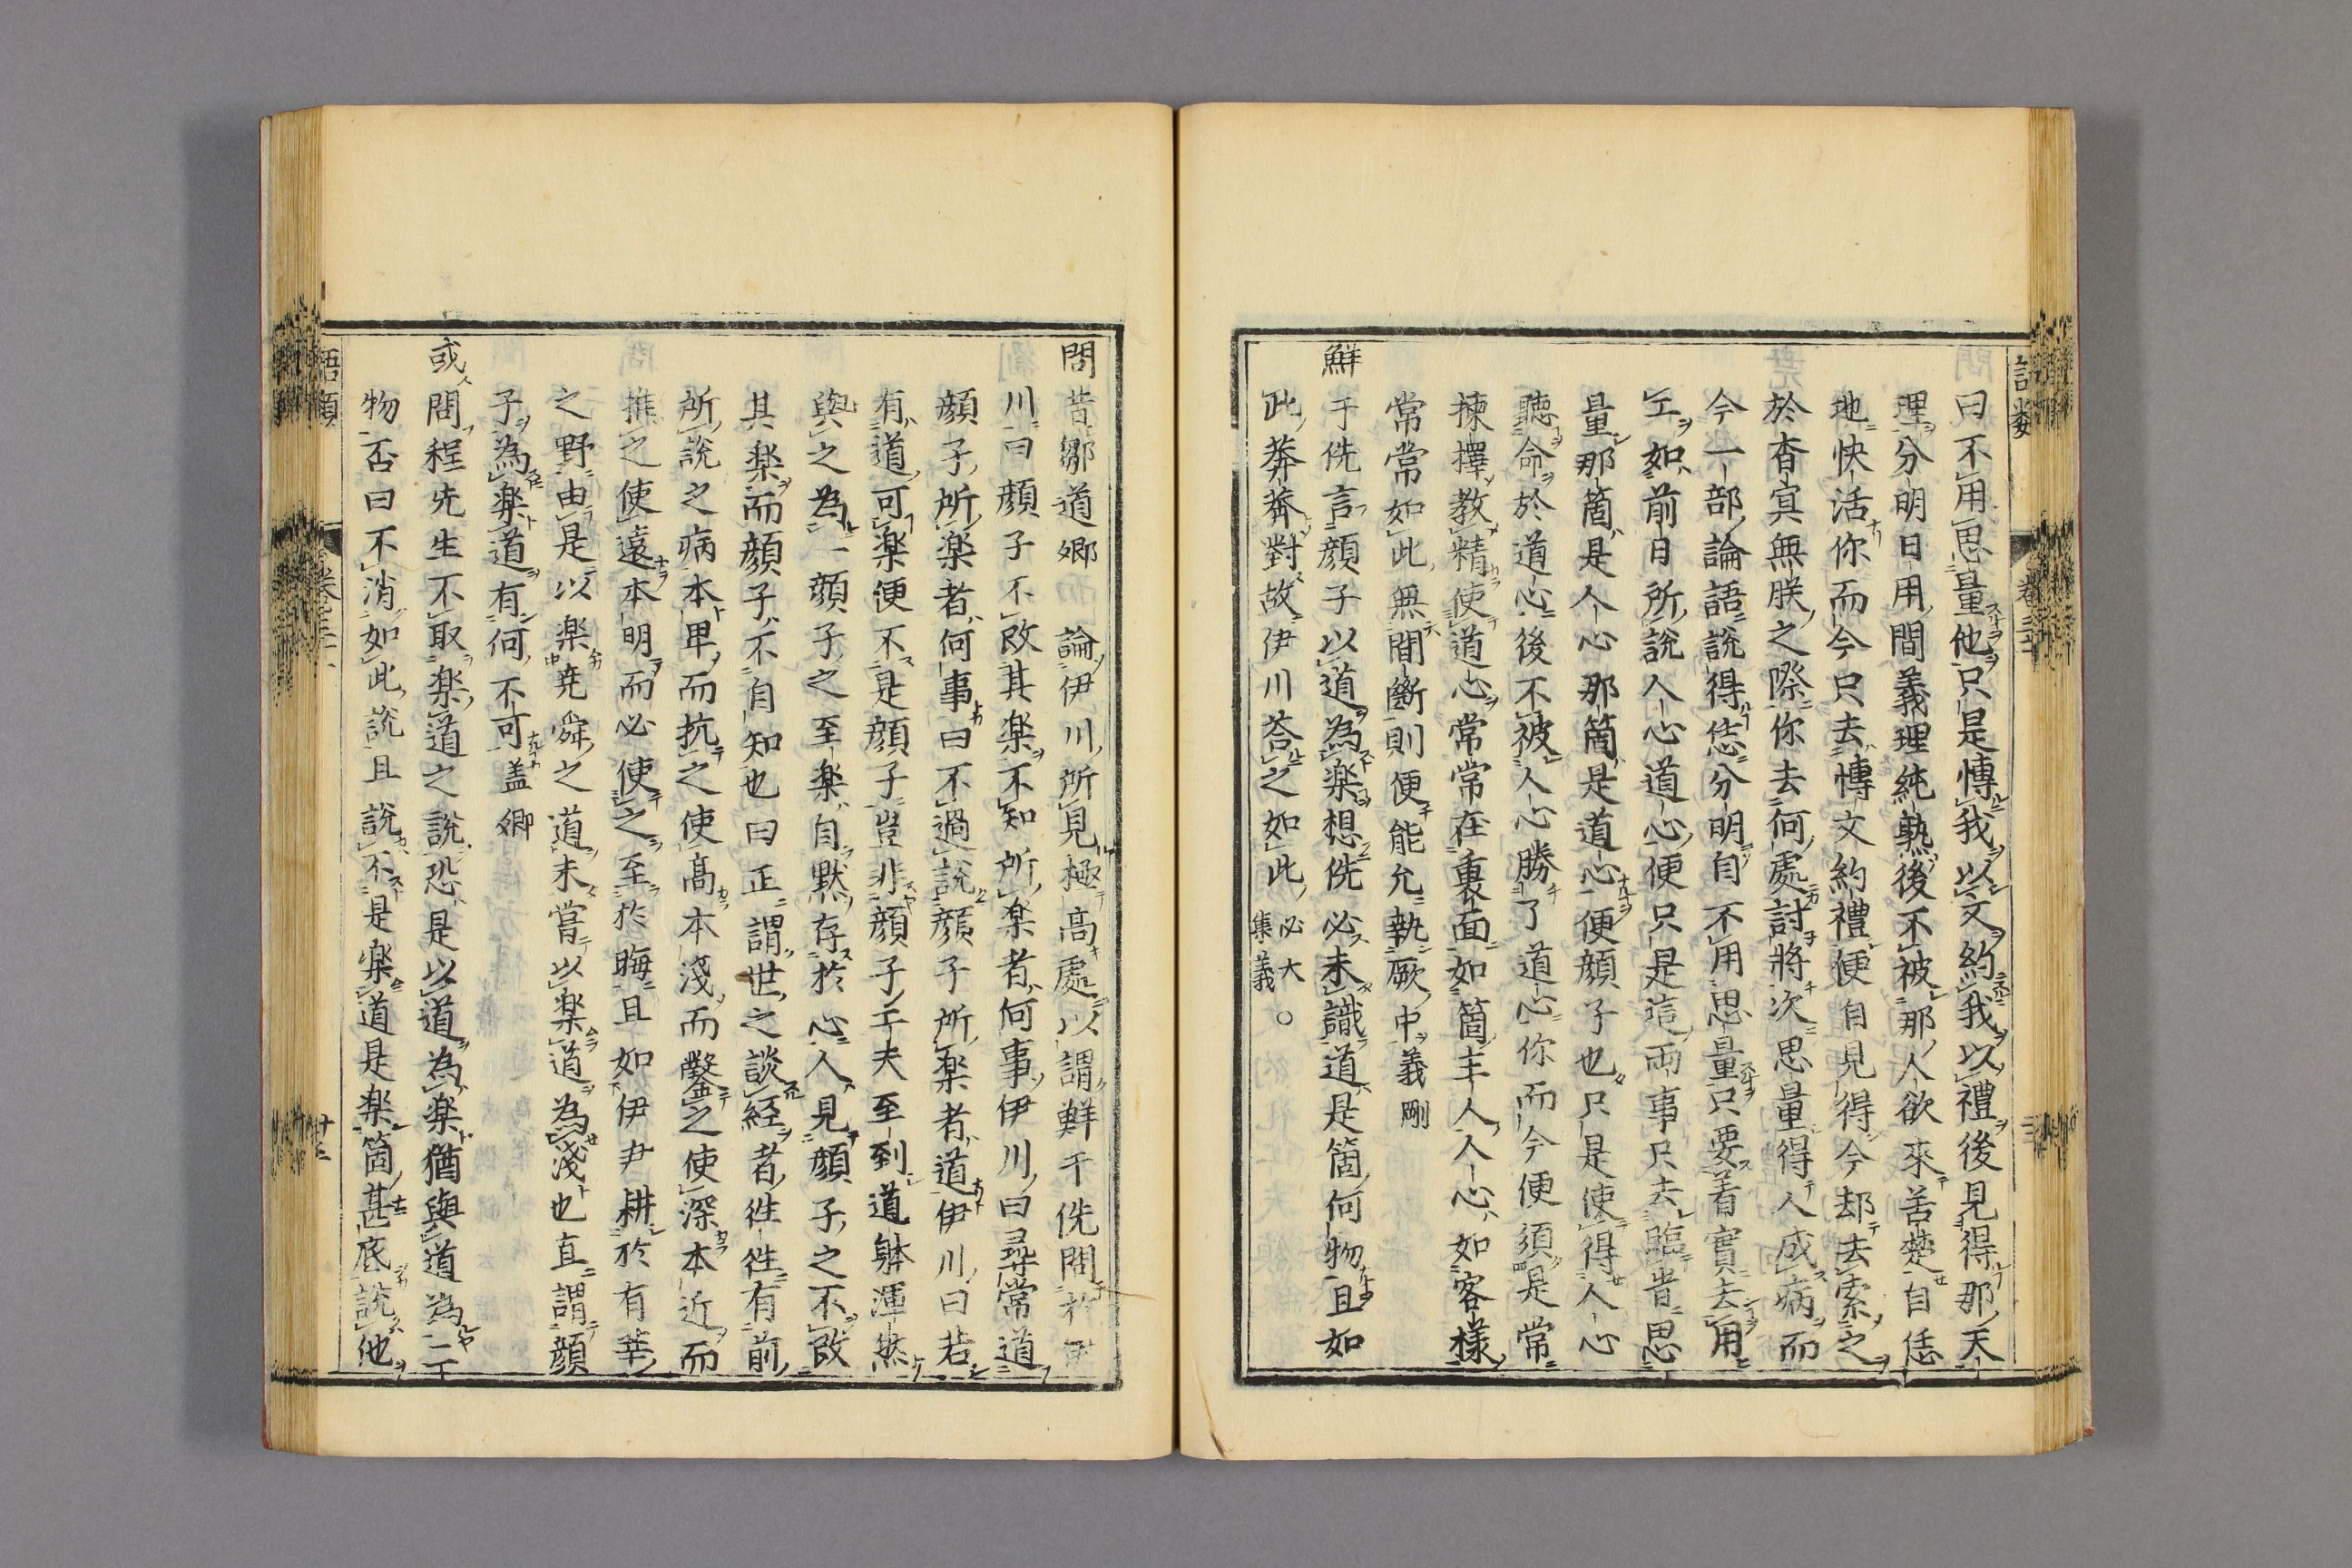 曰不用思量他只是博我以文約我以禮後見得那天
理分明日用間義理純熟後不被那人欲來苦楚自恁
地快活你而今只去博文約禮便自見得今却去索之
於杳冥無朕之際你去何處討將次思量得人成病而
今一部論語說得恁分明自不用思量只要着實去用
工如前日所說人心道心便只是這兩事只去臨時思
量那箇是人心那箇是道心便顔子也只是使得人心
聽命於道心後不被人心勝了道心你而今便須是常
揀擇教精使道心常常在裏面如箇主人人心如客樣
常常如此無間斷則便能允執厥中義剛
鮮于侁言顔子以道為楽想侁必未識道是箇何物且如
此莽莽對故伊川荅之如此 必大○集義
問昔鄒道郷論伊川所見極高處以謂鮮于侁問於伊
川曰顔子不改其楽不知所楽者何事伊川曰尋常道
顔子所楽者何事曰不過說顔子所楽者道伊川曰若
有道可楽便不是顔子豈非顔子工夫至到道躰渾然
與之為一顔子之至楽自默存於心人見顔子之不改
其楽而顔子不自知也曰正謂世之談経者徃徃有前
所說之病本卑而抗之使高本淺而鑿之使深本近而
推之使遠本明而必使之至於晦且如伊尹耕於有莘
之野由是以楽堯舜之道未嘗以楽道為淺也直謂顔
子為楽道有何不可盖卿
或問程先生不取楽道之說恐是以道為楽猶與道為二
物否曰不消如此說且說不是楽道是楽箇甚底說他
語類 卷三十一 十三